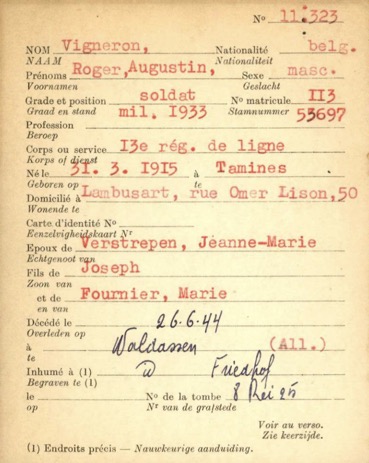 No 11.323
NOM Vigneron, Nationalité belg.
NAAM Nationaliteit
Prénoms Roger, Augustin, Sexe masc.
Voornamen Geslacht
Grade et position soldat No matricule II3
Graad en stand mil. 1933 Stamnummer 53697
Profession
Beroep
Corps ou service I3e rég. de ligne
Korps of dienst
Né le 31. 3. 1915 à Tamines
Geboren op te
Domicilié à Lambusart, rue Omer Lison, 50
Wonende te
Carte d'identité No
Eenzelvigheidskaart Nr
Epoux de Verstrepen, Jeanne-Marie
Echtgenoot van
Fils de Joseph
Zoon van
et de Fournier, Marie
en van
Décédé le 26.6.44
Overleden op
à Waldassen (All.)
te
Inhumé à (1) Friedhof
Begraven te (1)
le No de la tombe 8 Rei 25
op Nr van de grafstede
Voir au verso.
Zie keerzijde.
(1) Endroits précis — Nauwkeurige aanduiding.